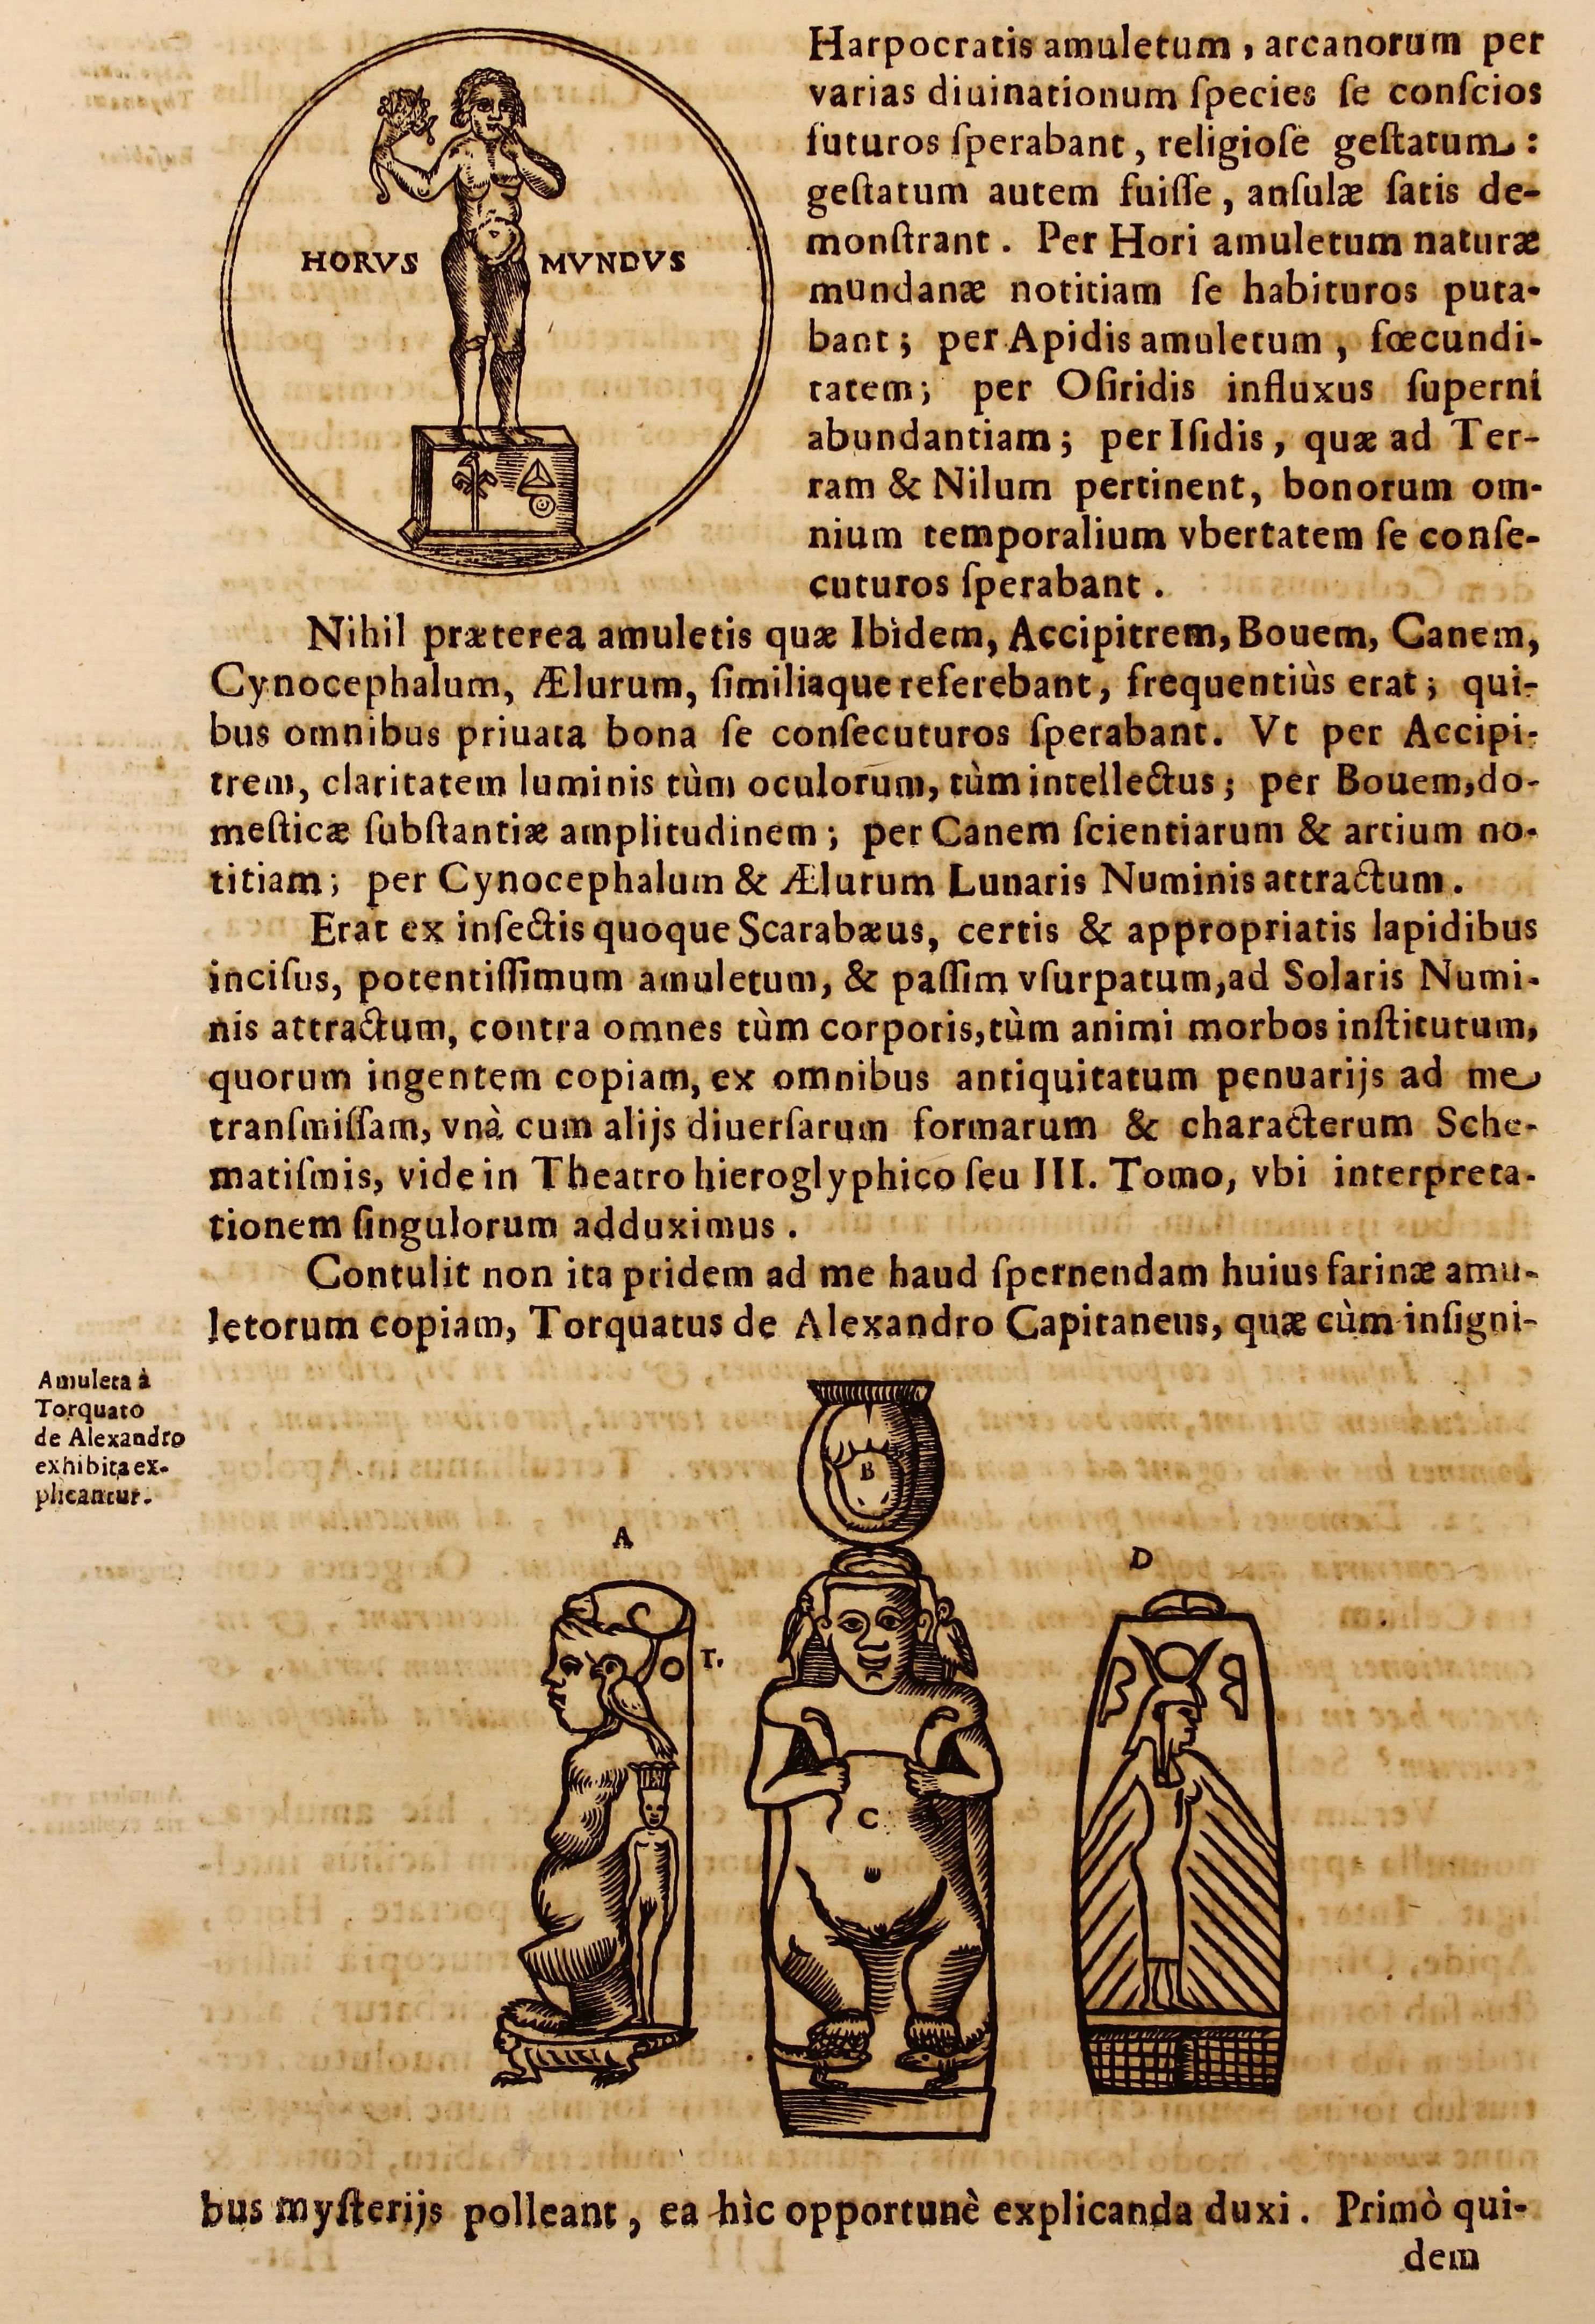 HORVS MVNDVS
Harpocratis amuletum, arcanorum per
varias diuinationum ſpecies ſe conſcios
futuros ſperabant, religioſè geſtatum:
geſtatum autem fuiſſe, anſulæ ſatis de-
monſtrant. Per Hori amuletum naturæ
mundanæ notitiam ſe habituros puta-
bant; per Apidis amuletum, fœcundi-
tatem; per Oſiridis influxus ſuperni
abundantiam; per Iſidis, quæ ad Ter-
ram & Nilum pertinent, bonorum om-
nium temporalium vbertatem ſe conſe-
cuturos ſperabant.
Nihil præterea amuletis quæ Ibidem, Accipitrem, Bouem, Canem,
Cynocephalum, Ælurum, ſimiliaque referebant, frequentiùs erat; qui-
bus omnibus priuata bona ſe conſecuturos ſperabant. Vt per Accipi-
trem, claritatem luminis tùm oculorum, tùm intellectus; per Bouem, do-
meſticæ ſubſtantiæ amplitudinem; per Canem ſcientiarum & artium no-
titiam; per Cynocephalum & Ælurum Lunaris Numinis attractum.
Erat ex inſectis quoque Scarabæus, certis & appropriatis lapidibus
inciſus, potentiſſimum amuletum, & paſſim vſurpatum, ad Solaris Numi-
nis attractum, contra omnes tùm corporis, tùm animi morbos inſtitutum,
quorum ingentem copiam, ex omnibus antiquitatum penuarijs ad me
tranſmiſſam, vnà cum alijs diuerſarum formarum & characterum Sche-
matiſmis, vide in Theatro hieroglyphico ſeu III. Tomo, vbi interpreta-
tionem ſingulorum adduximus.
Contulit non ita pridem ad me haud ſpernendam huius farinæ amu-
letorum copiam, Torquatus de Alexandro Capitaneus, quæ cùm inſigni-
Amuleta à
Torquato
de Alexandro
exhibita ex-
plicantur.
B
A
D
r.
C
bus myſterijs polleant, ea hìc opportunè explicanda duxi. Primò qui-
dem